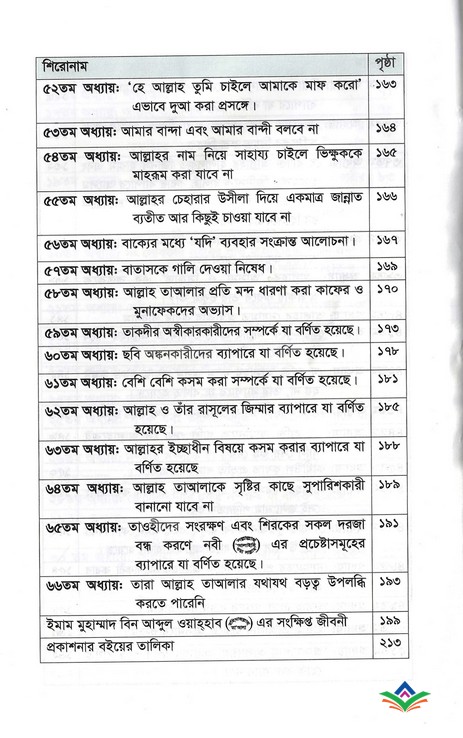 শিরোনাম পৃষ্ঠা
৫২তম অধ্যায়: ‘হে আল্লাহ তুমি চাইলে আমাকে মাফ করো’ ১৬৩
এভাবে দুআ করা প্রসঙ্গে।
৫৩তম অধ্যায়: আমার বান্দা এবং আমার বান্দী বলবে না ১৬৪
৫৪তম অধ্যায়: আল্লাহর নাম নিয়ে সাহায্য চাইলে ভিক্ষুককে ১৬৫
মাহরূম করা যাবে না
৫৫তম অধ্যায়: আল্লাহর চেহারার উসীলা দিয়ে একমাত্র জান্নাত ১৬৬
ব্যতীত আর কিছুই চাওয়া যাবে না
৫৬তম অধ্যায়: বাক্যের মধ্যে ‘যদি’ ব্যবহার সংক্রান্ত আলোচনা। ১৬৭
৫৭তম অধ্যায়: বাতাসকে গালি দেওয়া নিষেধ। ১৬৯
৫৮তম অধ্যায়: আল্লাহ তাআলার প্রতি মন্দ ধারণা করা কাফের ও ১৭০
মুনাফেকদের অভ্যাস।
৫৯তম অধ্যায়: তাকদীর অস্বীকারকারীদের সম্পর্কে যা বর্ণিত হয়েছে। ১৭৩
৬০তম অধ্যায়: ছবি অঙ্কনকারীদের ব্যাপারে যা বর্ণিত হয়েছে। ১৭৮
৬১তম অধ্যায়: বেশি বেশি কসম করা সম্পর্কে যা বর্ণিত হয়েছে। ১৮১
৬২তম অধ্যায়: আল্লাহ ও তাঁর রাসূলের জিম্মার ব্যাপারে যা বর্ণিত ১৮৫
হয়েছে।
৬৩তম অধ্যায়: আল্লাহর ইচ্ছাধীন বিষয়ে কসম করার ব্যাপারে যা ১৮৮
বর্ণিত হয়েছে
৬৪তম অধ্যায়: আল্লাহ তাআলাকে সৃষ্টির কাছে সুপারিশকারী ১৮৯
বানানো যাবে না
৬৫তম অধ্যায়: তাওহীদের সংরক্ষণ এবং শিরকের সকল দরজা ১৯১
বন্ধ করণে নবী () এর প্রচেষ্টাসমূহের
ব্যাপারে যা বর্ণিত হয়েছে।
৬৬তম অধ্যায়: তারা আল্লাহ তাআলার যথাযথ বড়ত্ব উপলব্ধি ১৯৩
করতে পারেনি
ইমাম মুহাম্মাদ বিন আব্দুল ওয়াহ্হাব () এর সংক্ষিপ্ত জীবনী ১৯৯
প্রকাশনার বইয়ের তালিকা ২১৩